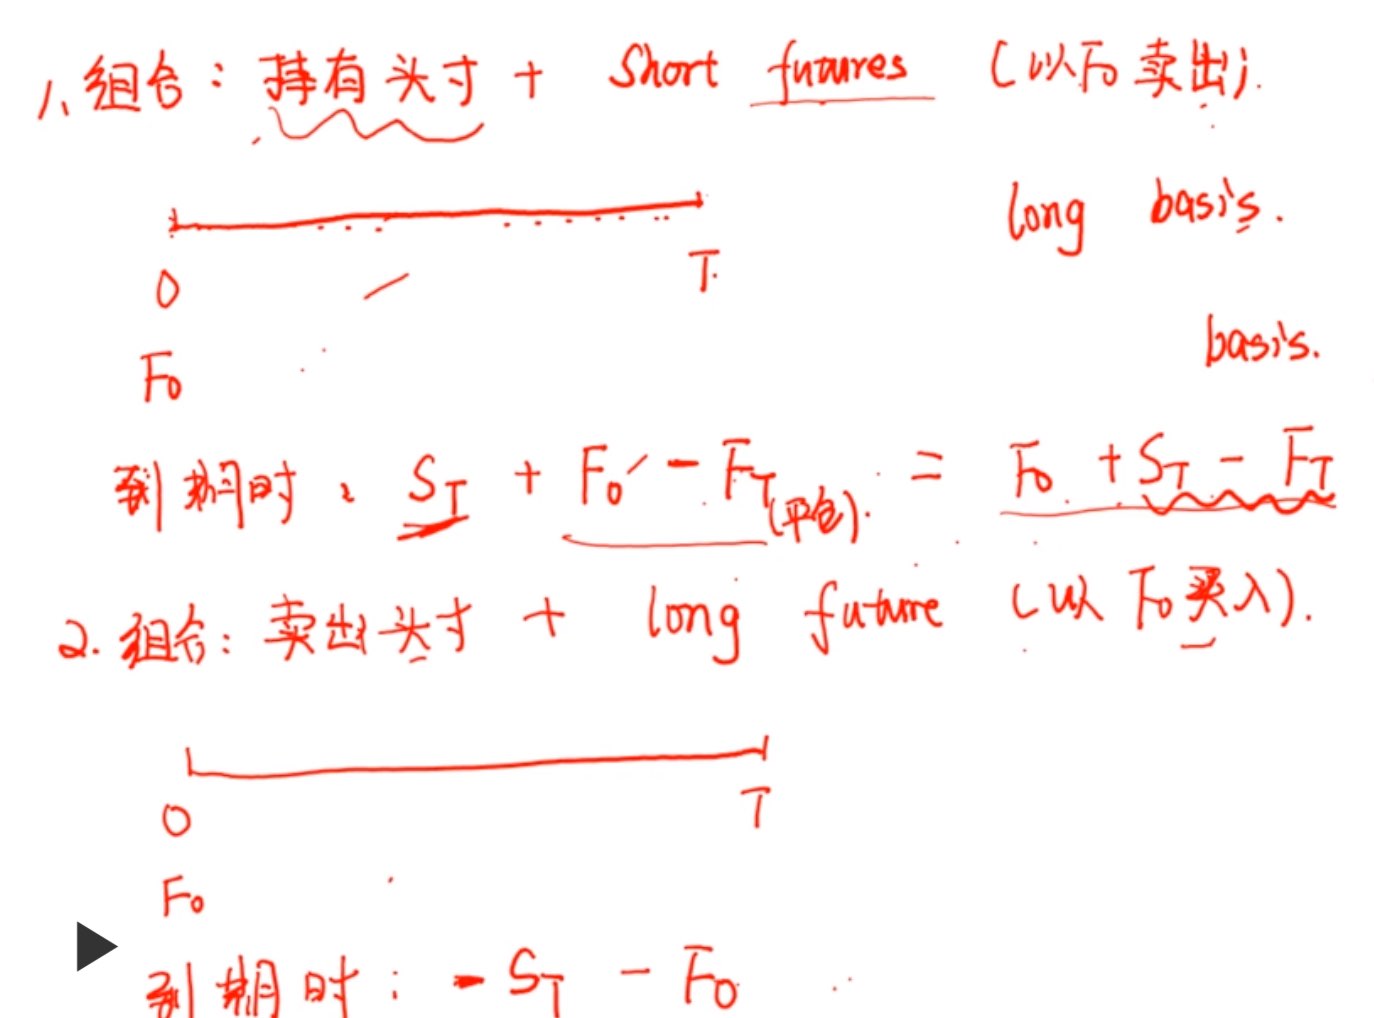 1、组合：持有头寸 + Short futures (以F₀卖出).
long basis.
0 T.
F₀
basis.
到期时： S_T + F₀ - F_T (平仓). = F₀ + S_T - F_T
2. 组合：卖出头寸 + long future (以F₀买入).
0 T
F₀
到期时： - S_T - F₀